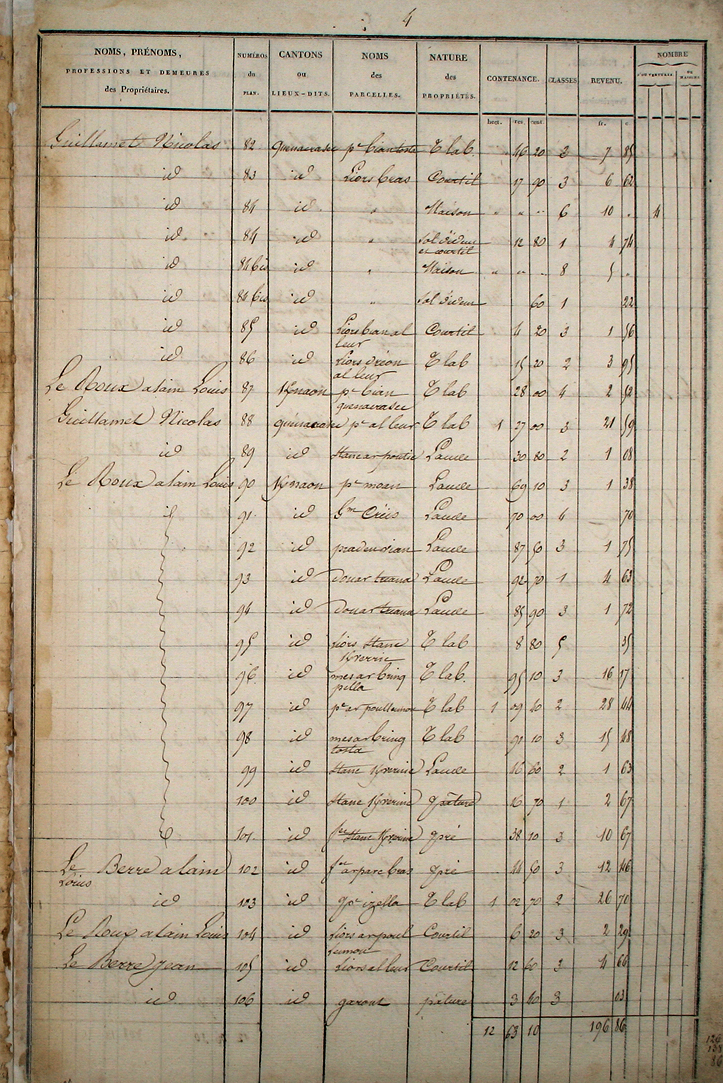 4
NOMS, PRÉNOMS, PROFESSIONS ET DEMEURES des Propriétaires. NUMÉROS du PLAN. CANTONS ou LIEUX-DITS. NOMS des PARCELLES. NATURE des PROPRIÉTÉS. CONTENANCE. CLASSES. REVENU. NOMBRE
hect. ares cent. fr. c.
Guillamet Nicolas 82 quenavasec pc bian tosta T lab 46 20 2 7 85
id 83 id Liors bras Courtil 17 90 3 6 62
id 84 id " Maison " " " 6 10 " 4
id 84 id " Sol d'édum et courtil 12 80 1 4 74
id 84 bis id " Maison " " " 8 5 "
id 84 bis id " Sol d'édum 60 1 22
id 85 id Liors banal leur Courtil 4 20 3 1 56
id 86 id Liors al leur T lab 15 20 2 3 95
Le Roux alain Louis 87 pc bian quenavasec T lab 28 00 4 2 52
Guillamet Nicolas 88 quenavasec pc al leur T lab 1 27 00 3 21 59
id 89 id Stanc ar pontic Lande 30 80 2 1 08
Le Roux alain Louis 90 pc moan Lande 69 10 3 1 38
id 91 id Lande 70 00 4 70
92 id Lande 87 50 3 1 75
93 id douar Lande 92 70 1 4 63
94 id douar Lande 85 90 3 1 72
95 id liors Stanc T lab 8 80 5 35
96 id mesar bring pella T lab. 95 10 3 16 17
97 id pc ar poullennou T lab 1 09 40 2 28 44
98 id mesar bring tosta T lab 91 10 3 15 48
99 id Stanc Lande 16 60 2 1 63
100 id Stanc pâture 16 70 1 2 67
101 id Stanc pré 38 10 3 10 67
Le Berre alain Louis 102 id ar parc bras pré 44 50 3 12 46
id 103 id pc izella T lab 1 02 70 2 26 70
Le Roux alain Louis 104 id liors ar poul Courtil 6 20 3 2 29
Le Berre jean 105 id liors al leur Courtil 12 60 3 4 66
id 106 id garout pâture 3 40 3 03
12 63 10 196 86